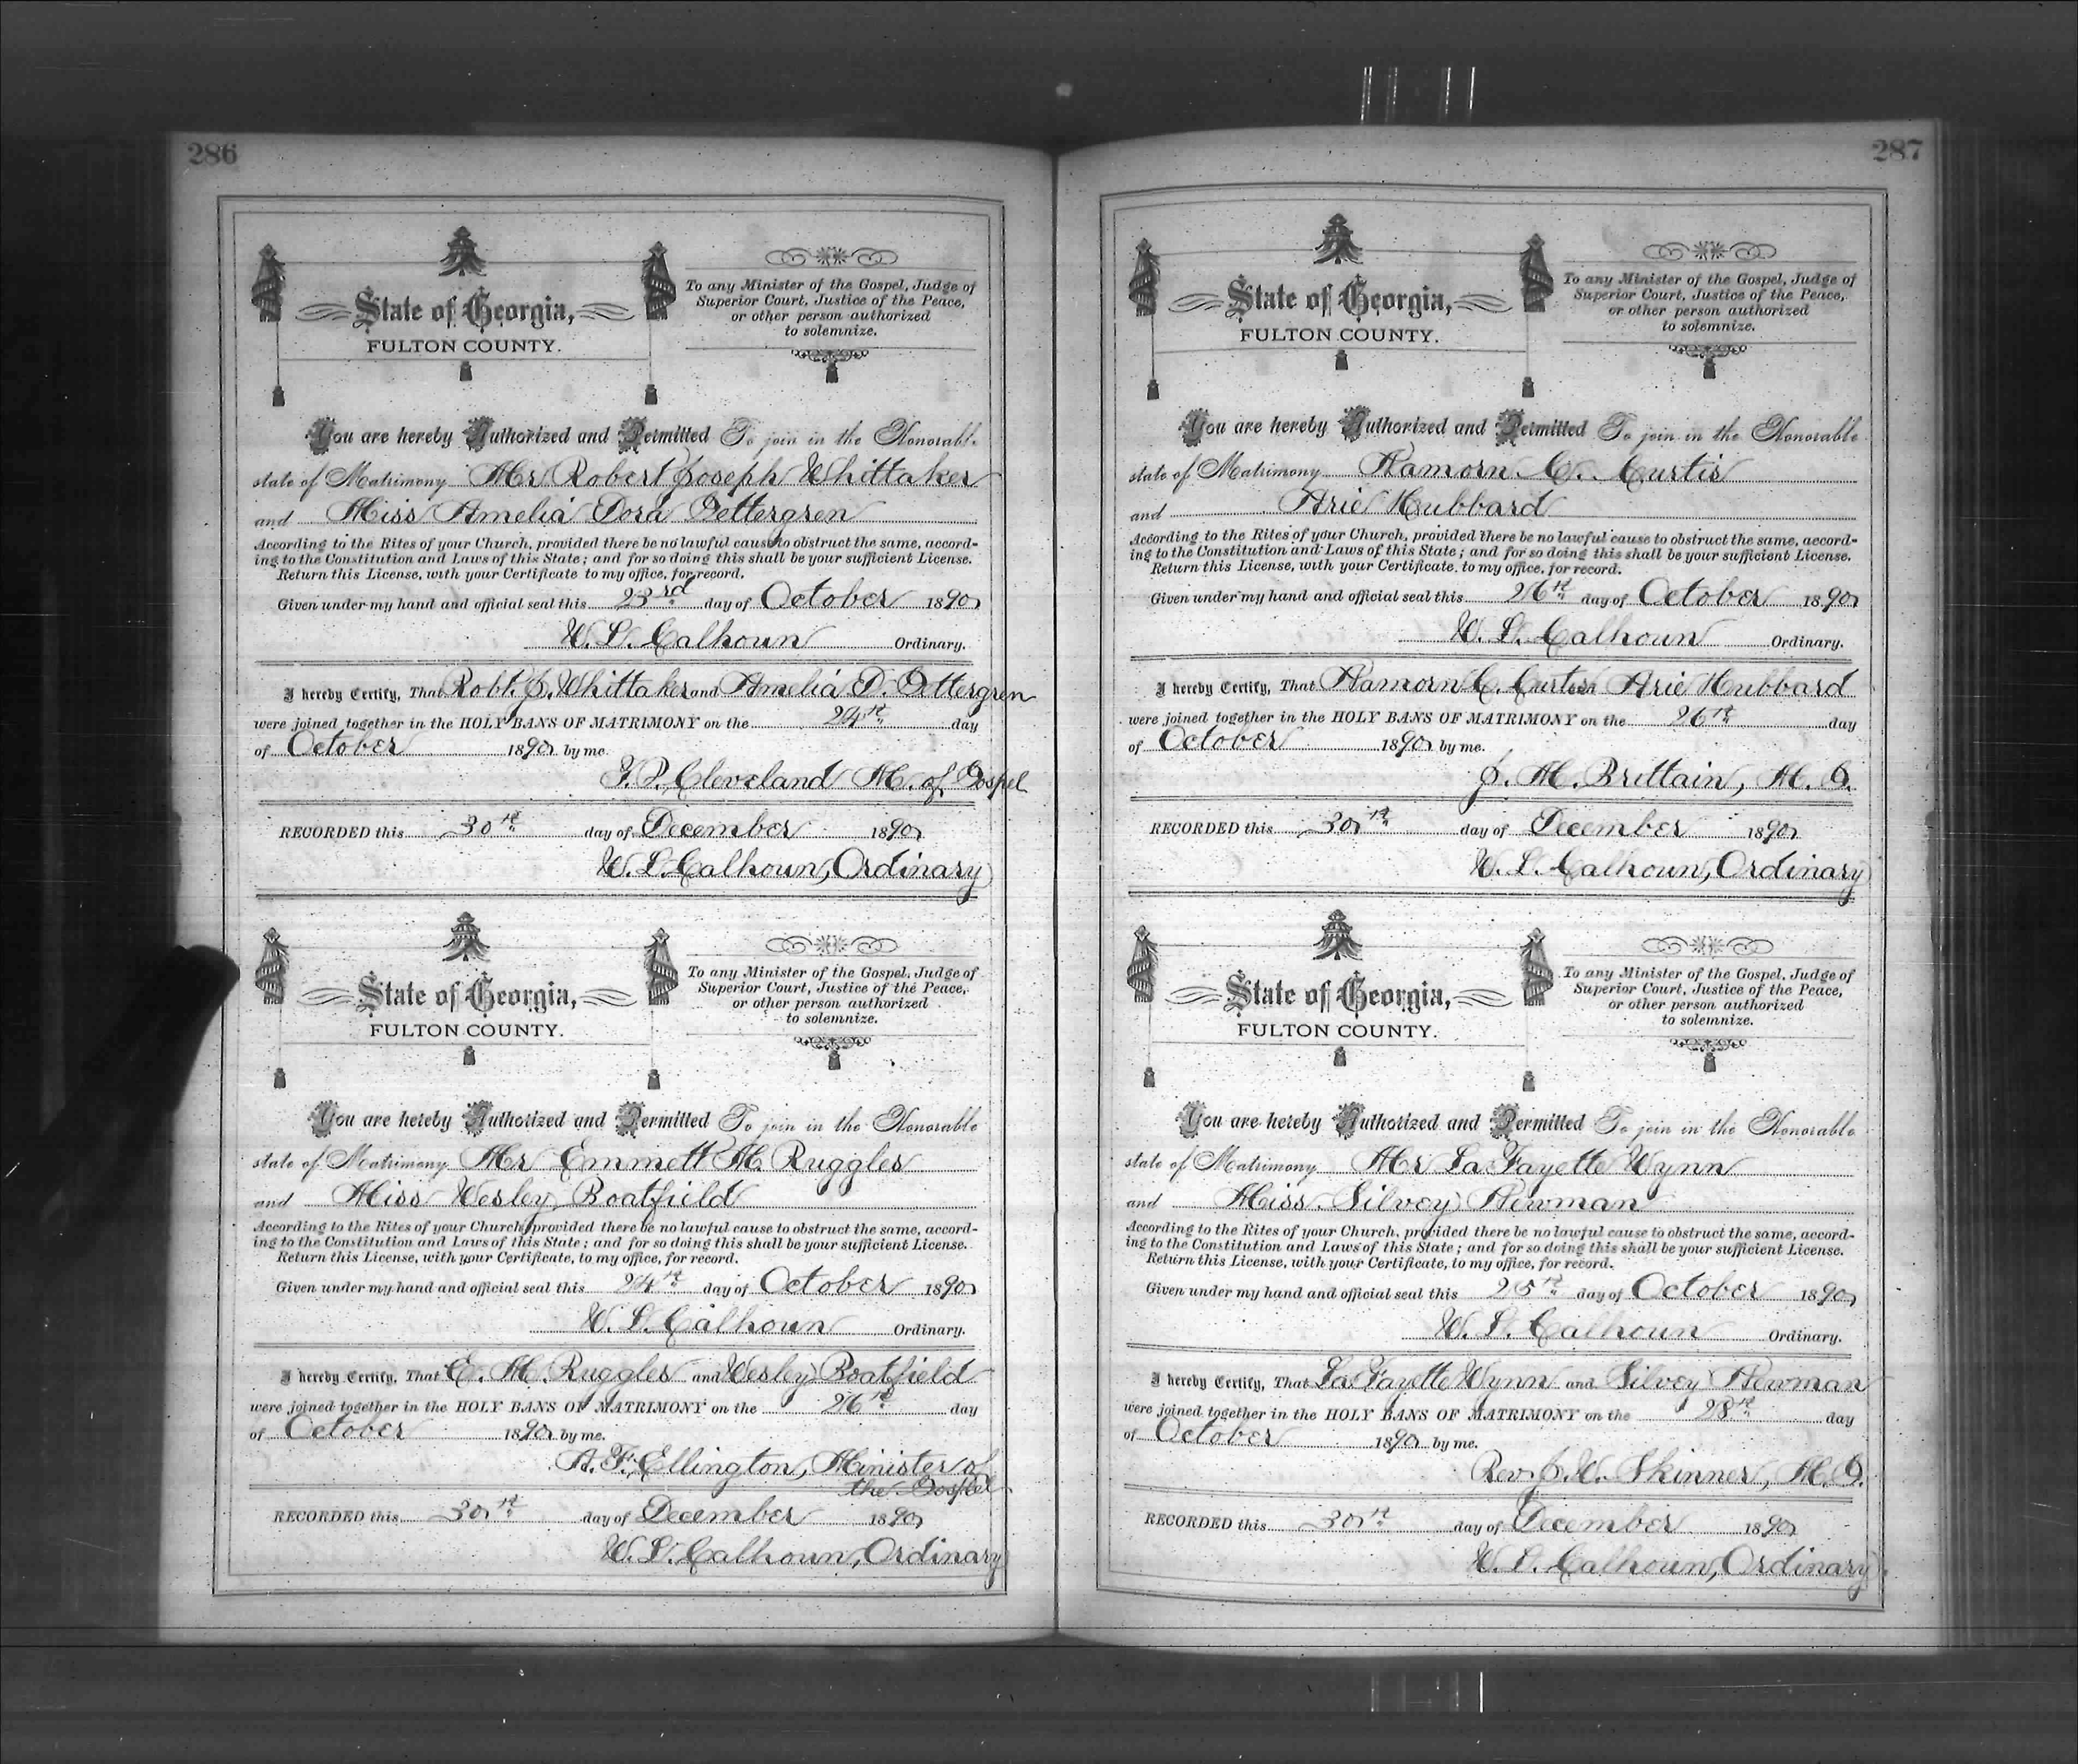 286
State of Georgia,
FULTON COUNTY.
To any Minister of the Gospel, Judge of
Superior Court, Justice of the Peace,
or other person authorized
to solemnize.
You are hereby Authorized and Permitted To join in the Honorable
state of Matrimony Mr Robert Joseph Whittaker
and Miss Amelia Dora Oettergren
According to the Rites of your Church, provided there be no lawful cause to obstruct the same, accord-
ing to the Constitution and Laws of this State; and for so doing this shall be your sufficient License.
Return this License, with your Certificate to my office, for record.
Given under my hand and official seal this 23rd day of October 1890
W. L. Calhoun Ordinary.
I hereby Certify, That Robt. J. Whittaker and Amelia D. Oettergren
were joined together in the HOLY BANS OF MATRIMONY on the 24th day
of October 1890 by me.
Cleveland M. of Gospel
RECORDED this 30th day of December 1890
W. L. Calhoun, Ordinary
State of Georgia,
FULTON COUNTY.
To any Minister of the Gospel, Judge of
Superior Court, Justice of the Peace,
or other person authorized
to solemnize.
You are hereby Authorized and Permitted To join in the Honorable
state of Matrimony Mr Emmett M. Ruggles
and Miss Wesley Boatfield
According to the Rites of your Church, provided there be no lawful cause to obstruct the same, accord-
ing to the Constitution and Laws of this State; and for so doing this shall be your sufficient License.
Return this License, with your Certificate, to my office, for record.
Given under my hand and official seal this 24th day of October 1890
W. L. Calhoun Ordinary.
I hereby Certify, That E. M. Ruggles and Wesley Boatfield
were joined together in the HOLY BANS OF MATRIMONY on the 26th day
of October 1890 by me.
A. F. Ellington, Minister of
the Gospel
RECORDED this 30th day of December 1890
W. L. Calhoun, Ordinary
287
State of Georgia,
FULTON COUNTY.
To any Minister of the Gospel, Judge of
Superior Court, Justice of the Peace,
or other person authorized
to solemnize.
You are hereby Authorized and Permitted To join in the Honorable
state of Matrimony Ramorn C. Curtis
and Arie Hubbard
According to the Rites of your Church, provided there be no lawful cause to obstruct the same, accord-
ing to the Constitution and Laws of this State; and for so doing this shall be your sufficient License.
Return this License, with your Certificate, to my office, for record.
Given under my hand and official seal this 26th day of October 1890
W. L. Calhoun Ordinary.
I hereby Certify, That Ramorn C. Curtis and Arie Hubbard
were joined together in the HOLY BANS OF MATRIMONY on the 26th day
of October 1890 by me.
J. M. Brittain, M. G.
RECORDED this 30th day of December 1890
W. L. Calhoun, Ordinary
State of Georgia,
FULTON COUNTY.
To any Minister of the Gospel, Judge of
Superior Court, Justice of the Peace,
or other person authorized
to solemnize.
You are hereby Authorized and Permitted To join in the Honorable
state of Matrimony Mr LaFayette Wynn
and Miss Silvey Newman
According to the Rites of your Church, provided there be no lawful cause to obstruct the same, accord-
ing to the Constitution and Laws of this State; and for so doing this shall be your sufficient License.
Return this License, with your Certificate, to my office, for record.
Given under my hand and official seal this 25th day of October 1890
W. L. Calhoun Ordinary.
I hereby Certify, That LaFayette Wynn and Silvey Newman
were joined together in the HOLY BANS OF MATRIMONY on the 28th day
of October 1890 by me.
Rev. J. W. Skinner, M. G.
RECORDED this 30th day of December 1890
W. L. Calhoun, Ordinary